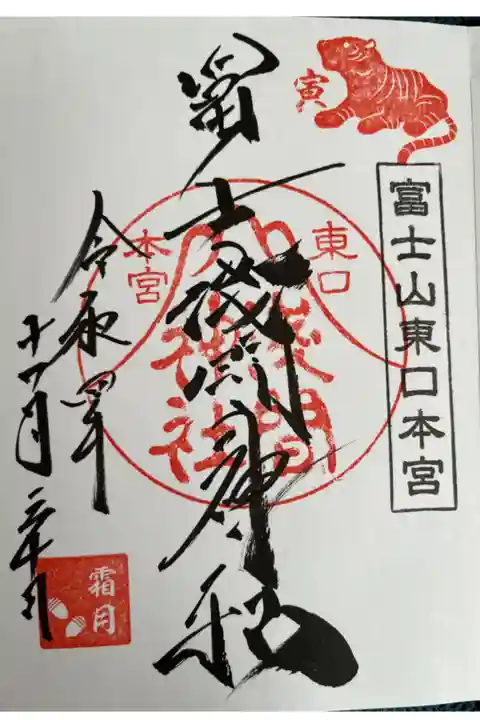 寅
富士山東口本宮
冨士浅間神社
東口
本宮
浅間
神社
令和四年
十一月三十日
霜月